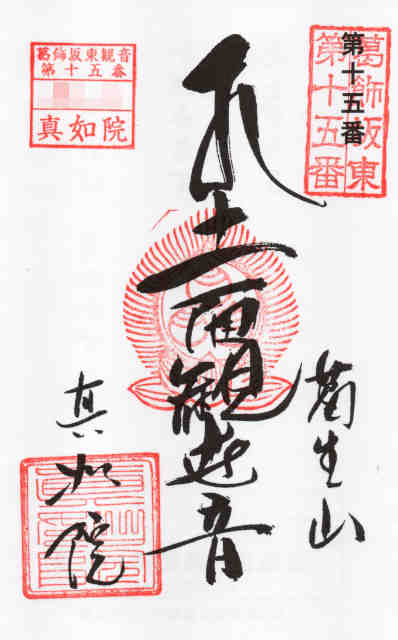 葛飾坂東
第十五番
第十五番
葛飾坂東観音
第十五番
真如院
生山
十一面観世音
真如院